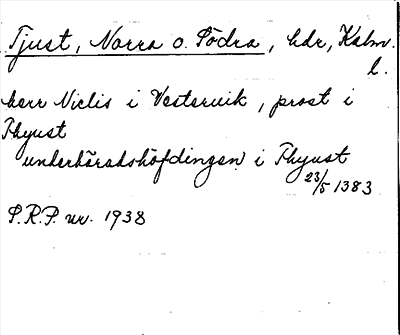 Tjust, Norra o. Södra, hdr, Kalm.
l.
herr Niclis i Vesteruik, prost i
Thyust
underhäradshöfdingen i Thyust
23/5 1383
S.R.P. nr. 1938